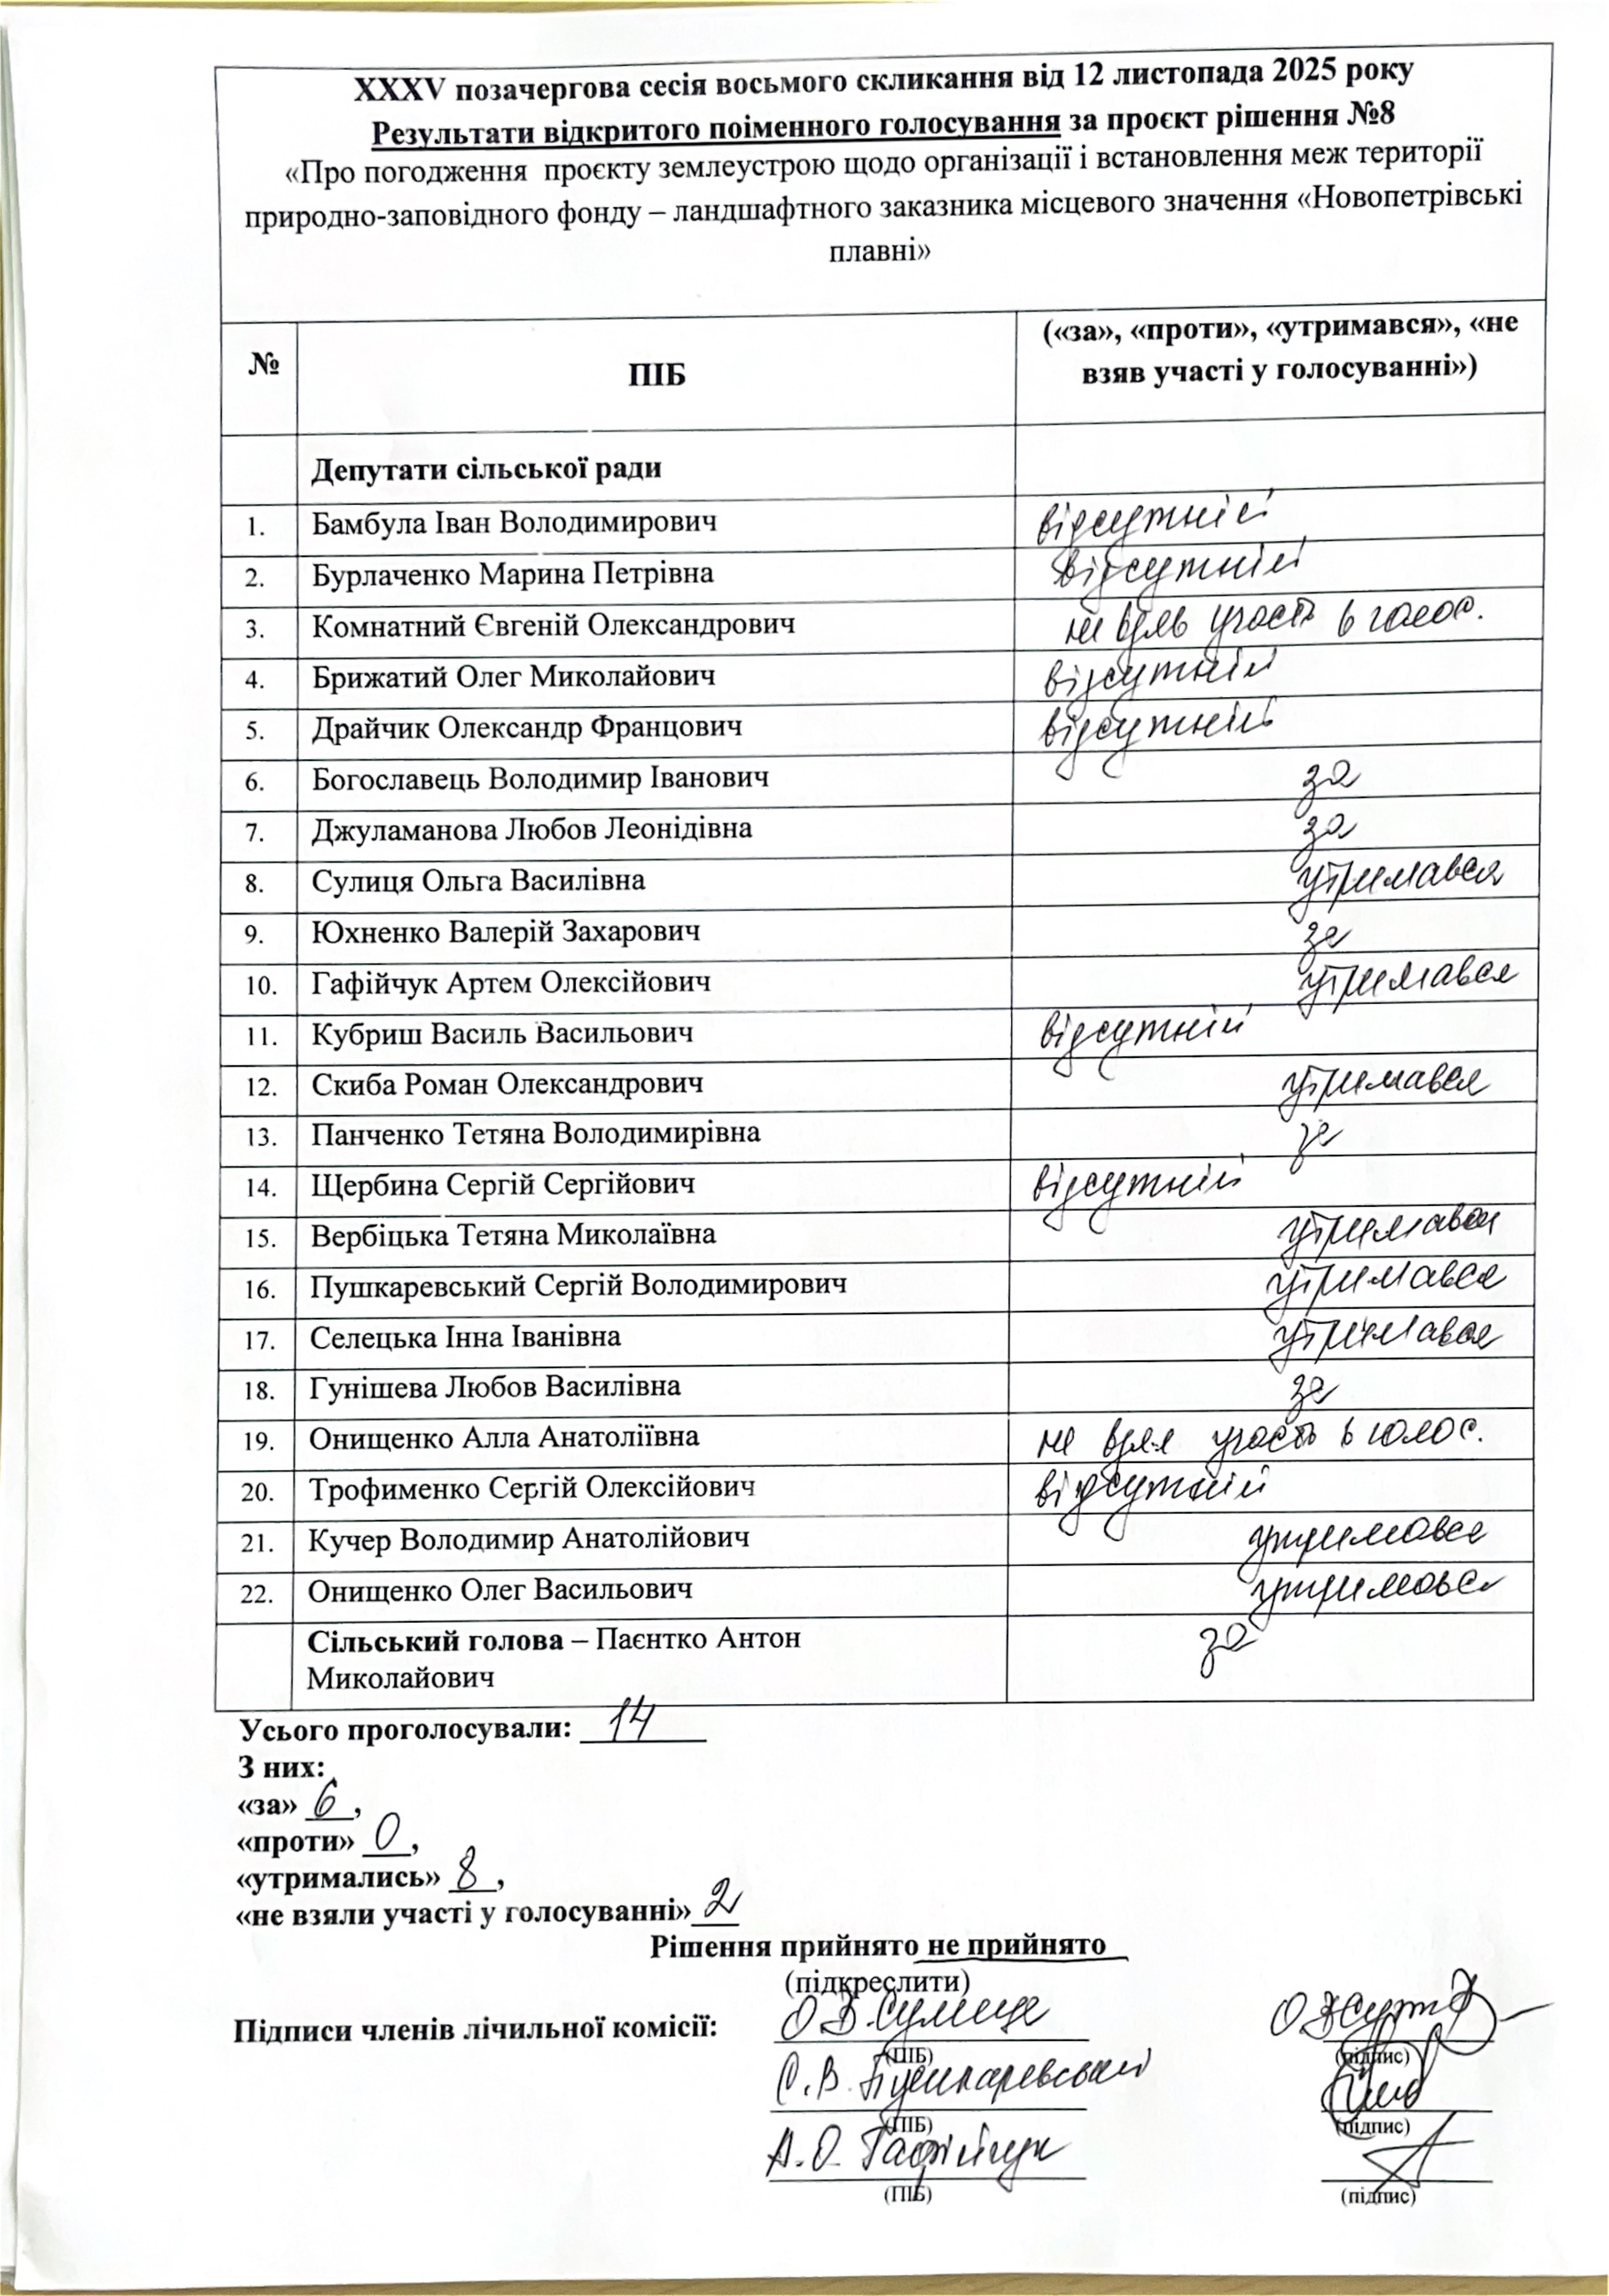 XXXV позачергова сесія восьмого скликання від 12 листопада 2025 року
Результати відкритого поіменного голосування за проєкт рішення №8
«Про погодження проєкту землеустрою щодо організації і встановлення меж території
природно-заповідного фонду – ландшафтного заказника місцевого значення «Новопетрівські
плавні»
№ ПІБ («за», «проти», «утримався», «не
взяв участі у голосуванні»)
Депутати сільської ради
1. Бамбула Іван Володимирович відсутній
2. Бурлаченко Марина Петрівна відсутній
3. Комнатний Євгеній Олександрович не взяв участь в голос.
4. Брижатий Олег Миколайович відсутній
5. Драйчик Олександр Францович відсутній
6. Богославець Володимир Іванович за
7. Джуламанова Любов Леонідівна за
8. Сулиця Ольга Василівна утримався
9. Юхненко Валерій Захарович за
10. Гафійчук Артем Олексійович утримався
11. Кубриш Василь Васильович відсутній
12. Скиба Роман Олександрович утримався
13. Панченко Тетяна Володимирівна за
14. Щербина Сергій Сергійович відсутній
15. Вербіцька Тетяна Миколаївна утримався
16. Пушкаревський Сергій Володимирович утримався
17. Селецька Інна Іванівна утримався
18. Гунішева Любов Василівна за
19. Онищенко Алла Анатоліївна не взяв участь в голос.
20. Трофименко Сергій Олексійович відсутній
21. Кучер Володимир Анатолійович утримався
22. Онищенко Олег Васильович утримався
Сільський голова – Паєнтко Антон за
Миколайович
Усього проголосували: 14
З них:
«за» 6,
«проти» 0,
«утримались» 8,
«не взяли участі у голосуванні» 2
Рішення прийнято не прийнято
(підкреслити)
Підписи членів лічильної комісії: О.В. Сулиця
(ПІБ) (підпис)
С.В. Пушкаревський
(ПІБ) (підпис)
А.О. Гафійчук
(ПІБ) (підпис)